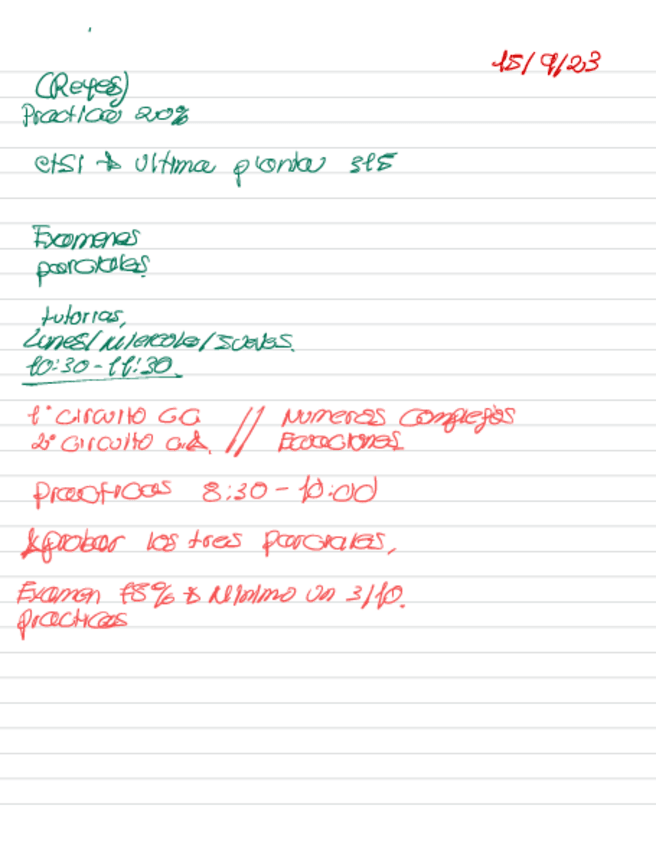 15/9/23
(Reyes)
Practicas 20%
etSi → Ultima planta 315
Examenes
parciales.
tutorias,
Lunes/Miercole/Jueves.
10:30-11:30.
1º Circuito CC // Numeros Complejos
2º Circuito C.A. // Ecuaciones
Practicas 8:30-10:00
Aprobar los tres parciales,
Examen → Minimo un 3/10.
practicas